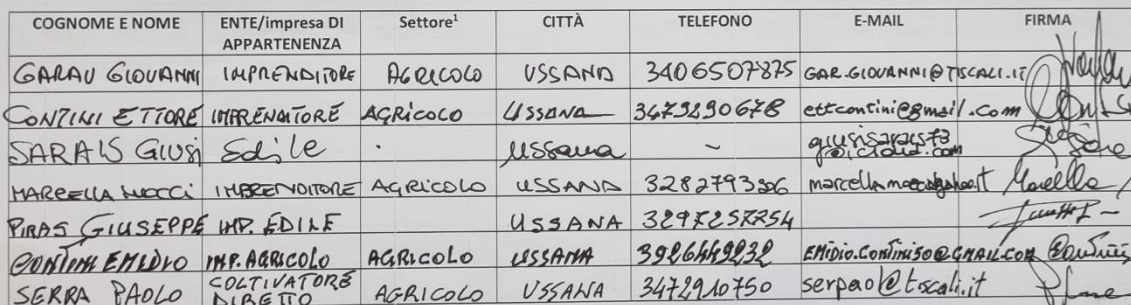 COGNOME E NOME ENTE/impresa DI APPARTENENZA Settore¹ CITTÀ TELEFONO E-MAIL FIRMA
GARAU GIOVANNI IMPRENDITORE AGRICOLO USSANA 3406507875 GAR.GIOVANNI@TISCALI.IT
CONTINI ETTORE IMPRENDITORE AGRICOLO USSANA 3479290678 ettcontini@gmail.com
SARAIS GIUSI Edile . Ussana -
MARCELLA MOCCI IMPRENDITORE AGRICOLO USSANA
PIRAS GIUSEPPE IMP. EDILE USSANA 3297257254
CONTINI EMIDIO IMP. AGRICOLO AGRICOLO USSANA 3926449232 EMIDIO.CONTINI50@GMAIL.COM
SERRA PAOLO COLTIVATORE DIRETTO AGRICOLO USSANA 3472910750 serpao@tiscali.it